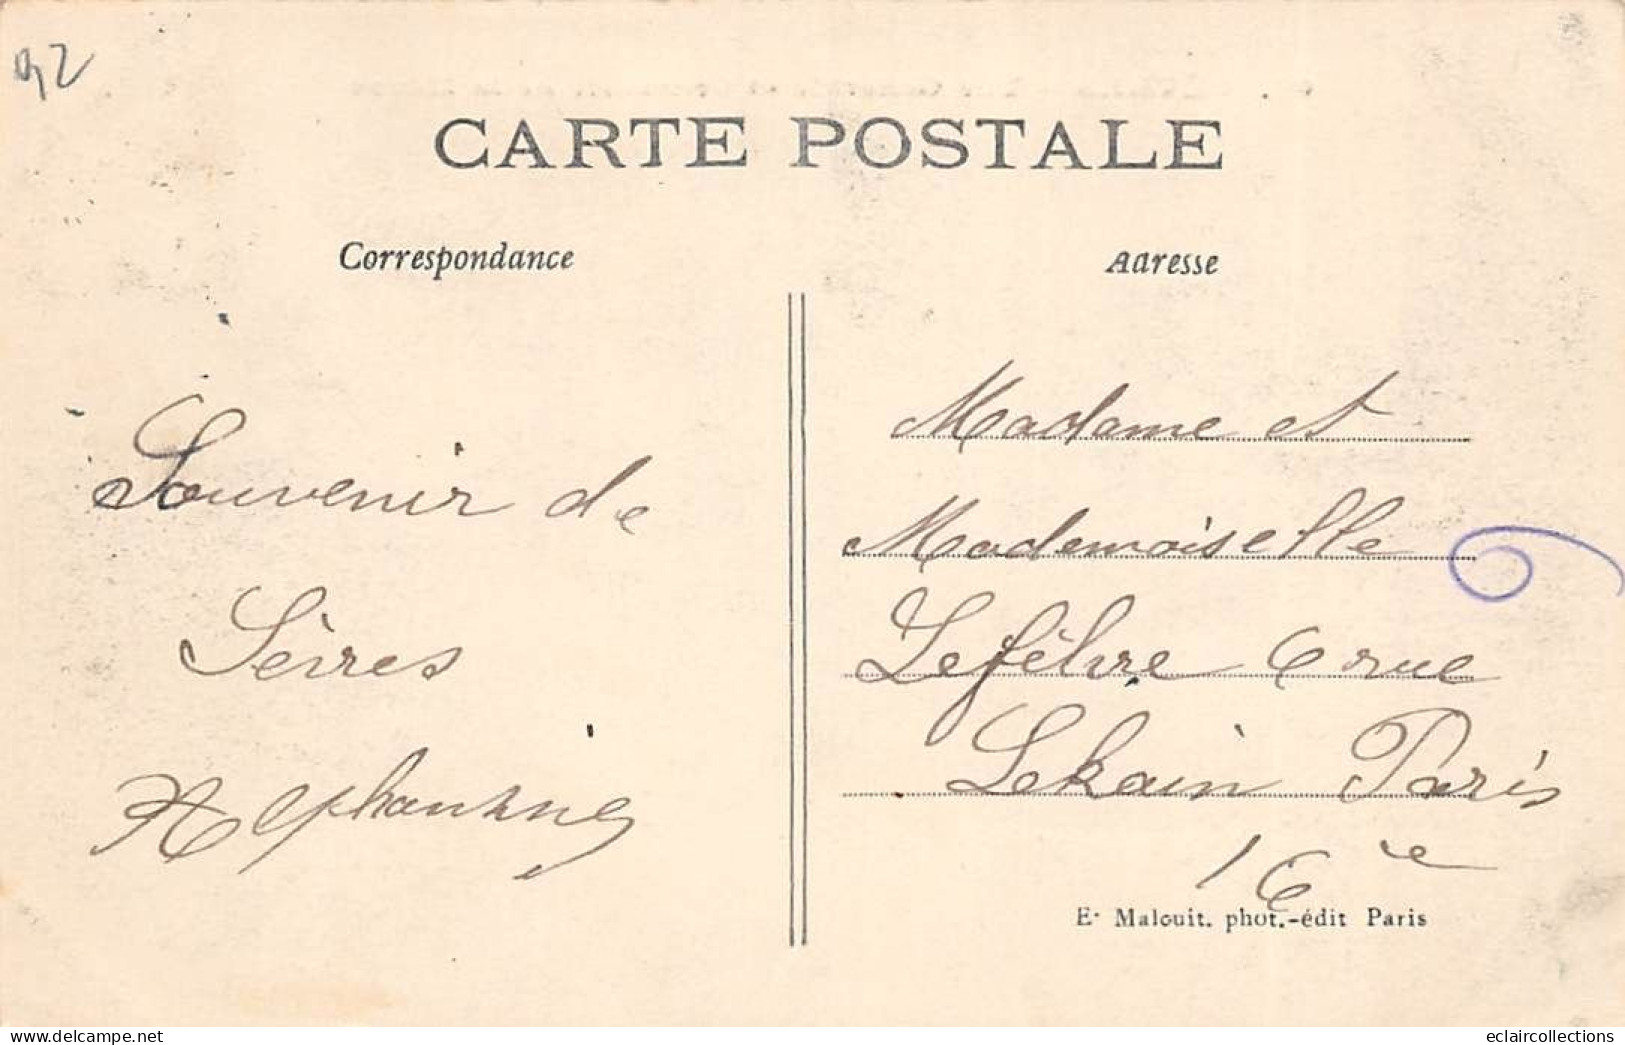 92
CARTE POSTALE
Correspondance
Adresse
Souvenir de
Sèvres
Madame et
Mademoiselle
Lefèbvre 6 rue
Lekain Paris
16e
6
E. Malcuit. phot.-édit Paris
eclaircollections